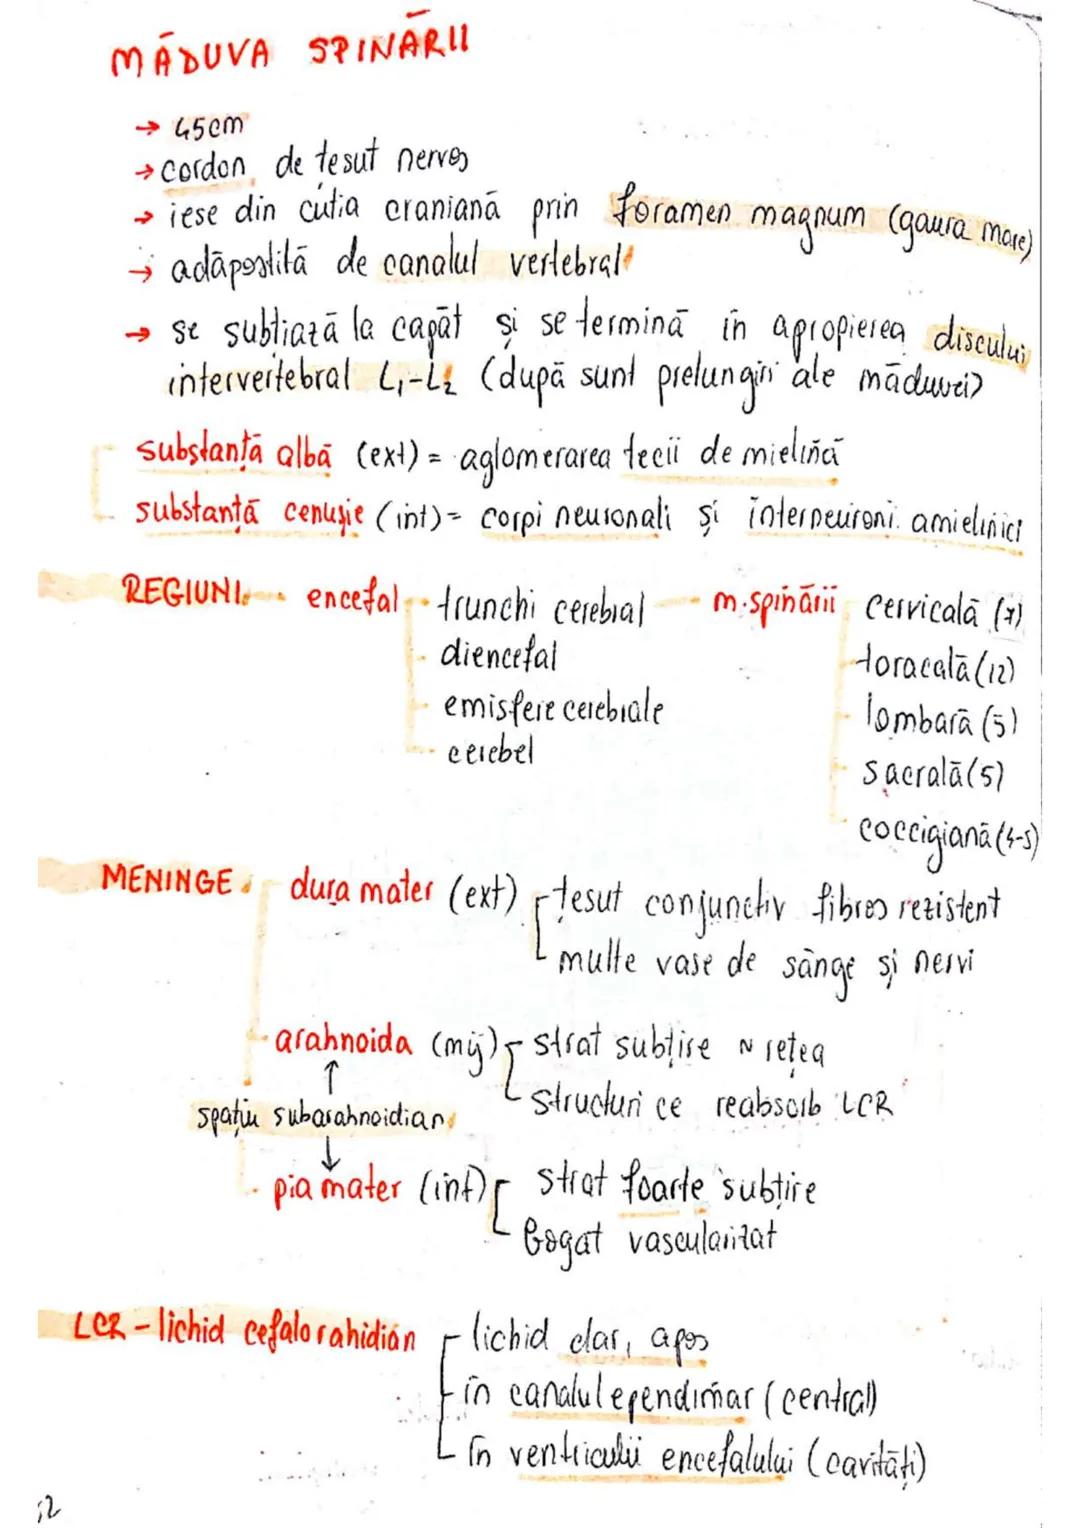 MĂDUVA SPINĂRII
→ 45cm
→ cordon de țesut nervos
→ iese din cutia craniană prin foramen magnum (gaura mare)
→ adăpostită de canalul vertebral
→ se subțiază la capăt și se termină în apropierea discului
intervertebral L1-L2 (după sunt prelungiri ale măduvei)
substanță albă (ext) = aglomerarea tecii de mielină
substanță cenușie (int) = corpi neuronali și interneuroni amielinici
REGIUNI encefal trunchi cerebral m.spinării cervicală (7)
diencefal toracală (12)
emisfere cerebrale lombară (5)
cerebel sacrală (5)
coccigiană (4-5)
MENINGE dura mater (ext) țesut conjunctiv fibros rezistent
multe vase de sânge și nervi
arahnoida (mij) strat subțire ~ rețea
↑ structuri ce reabsorb LCR
spațiu subarahnoidian
↓
pia mater (int) strat foarte subțire
bogat vascularizat
LCR - lichid cefalorahidian lichid clar, apos
în canalul ependimar (central)
în ventriculii encefalului (cavități)